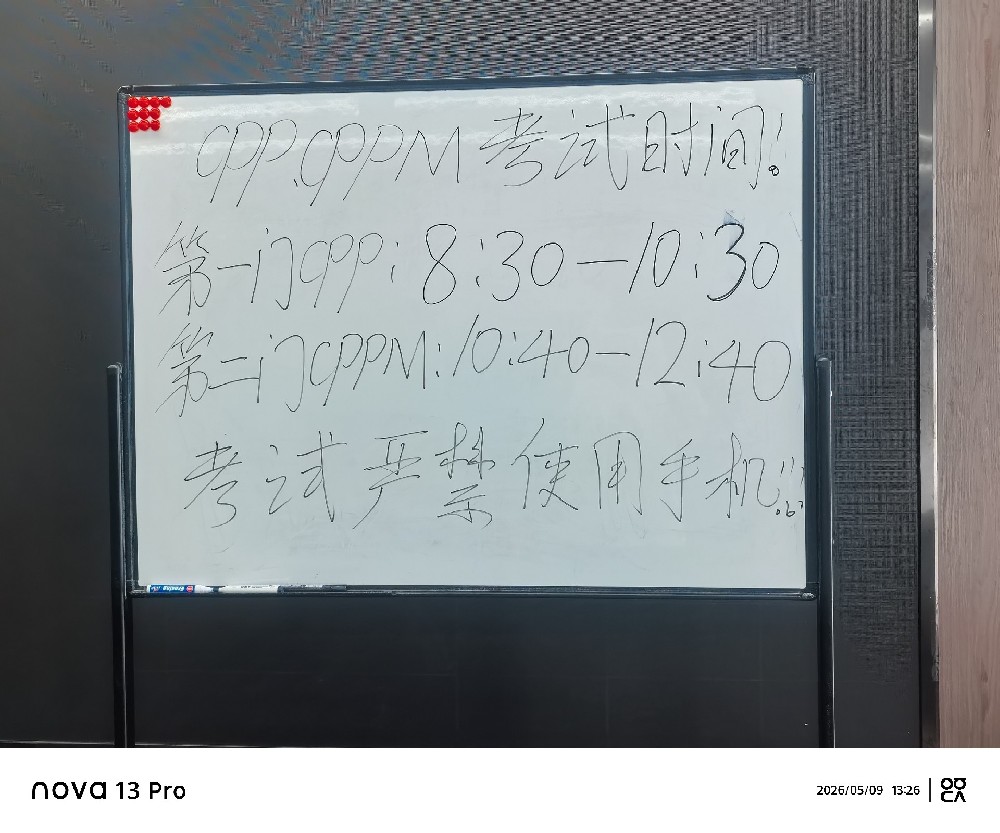 CPP、CPPM 考试时间!
第一门CPP: 8:30—10:30
第二门CPPM:10:40—12:40
考试严禁使用手机!!!
nova 13 Pro
2026/05/09 13:26